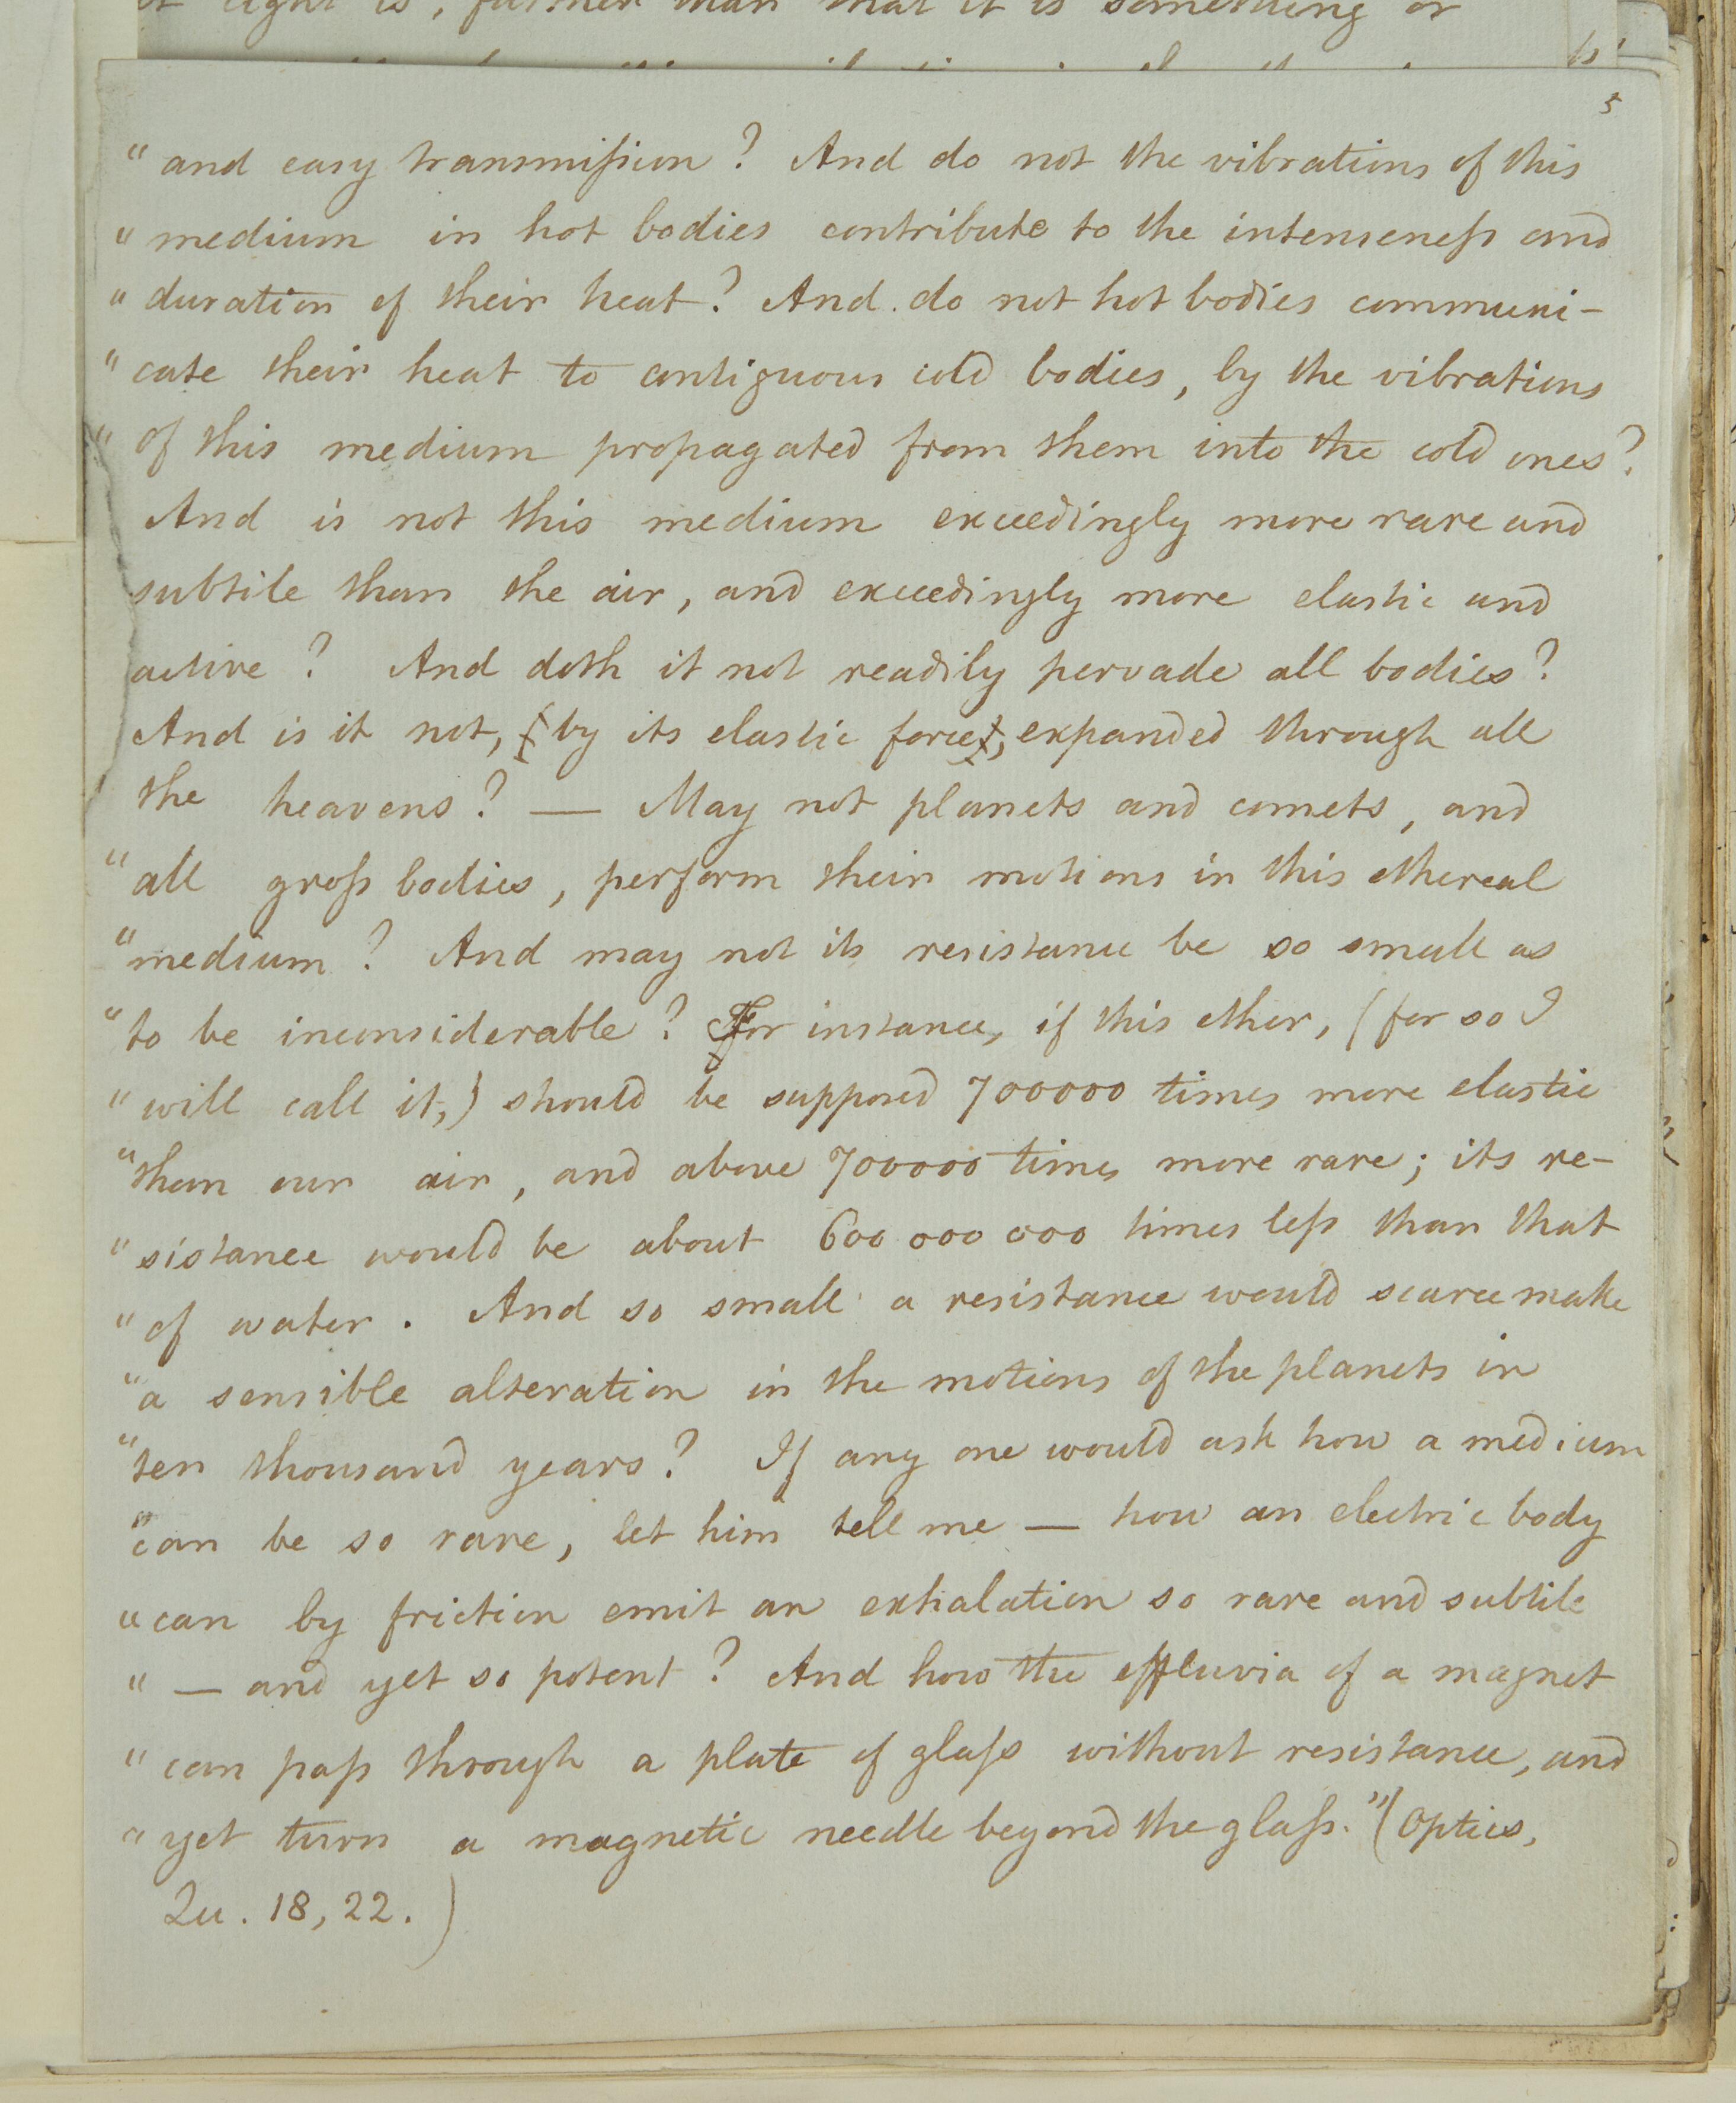 light is, further than that it is something or
5
" and easy transmiſsion? And do not the vibrations of this
" medium in hot bodies contribute to the intenseneſs and
" duration of their heat? And do not hot bodies communi-
" cate their heat to contiguous cold bodies, by the vibrations
" of this medium propagated from them into the cold ones?
And is not this medium exceedingly more rare and
subtile than the air, and exceedingly more elastic and
active? And doth it not readily pervade all bodies?
And is it not, (by its elastic force), expanded through all
the heavens? — May not planets and comets, and
" all groſs bodies, perform their motions in this ethereal
" medium? And may not its resistance be so small as
" to be inconsiderable? For instance, if this ether, (for so I
" will call it,) should be supposed 700000 times more elastic
" than our air, and above 700000 times more rare; its re-
" sistance would be about 600 000 000 times leſs than that
" of water. And so small a resistance would scarce make
" a sensible alteration in the motions of the planets in
" ten thousand years? If any one would ask how a medium
" can be so rare, let him tell me — how an electric body
" can by friction emit an exhalation so rare and subtile
" — and yet so potent? And how the effluvia of a magnet
" can paſs through a plate of glaſs without resistance, and
" yet turn a magnetic needle beyond the glaſs." (Optics,
Qu. 18, 22.)